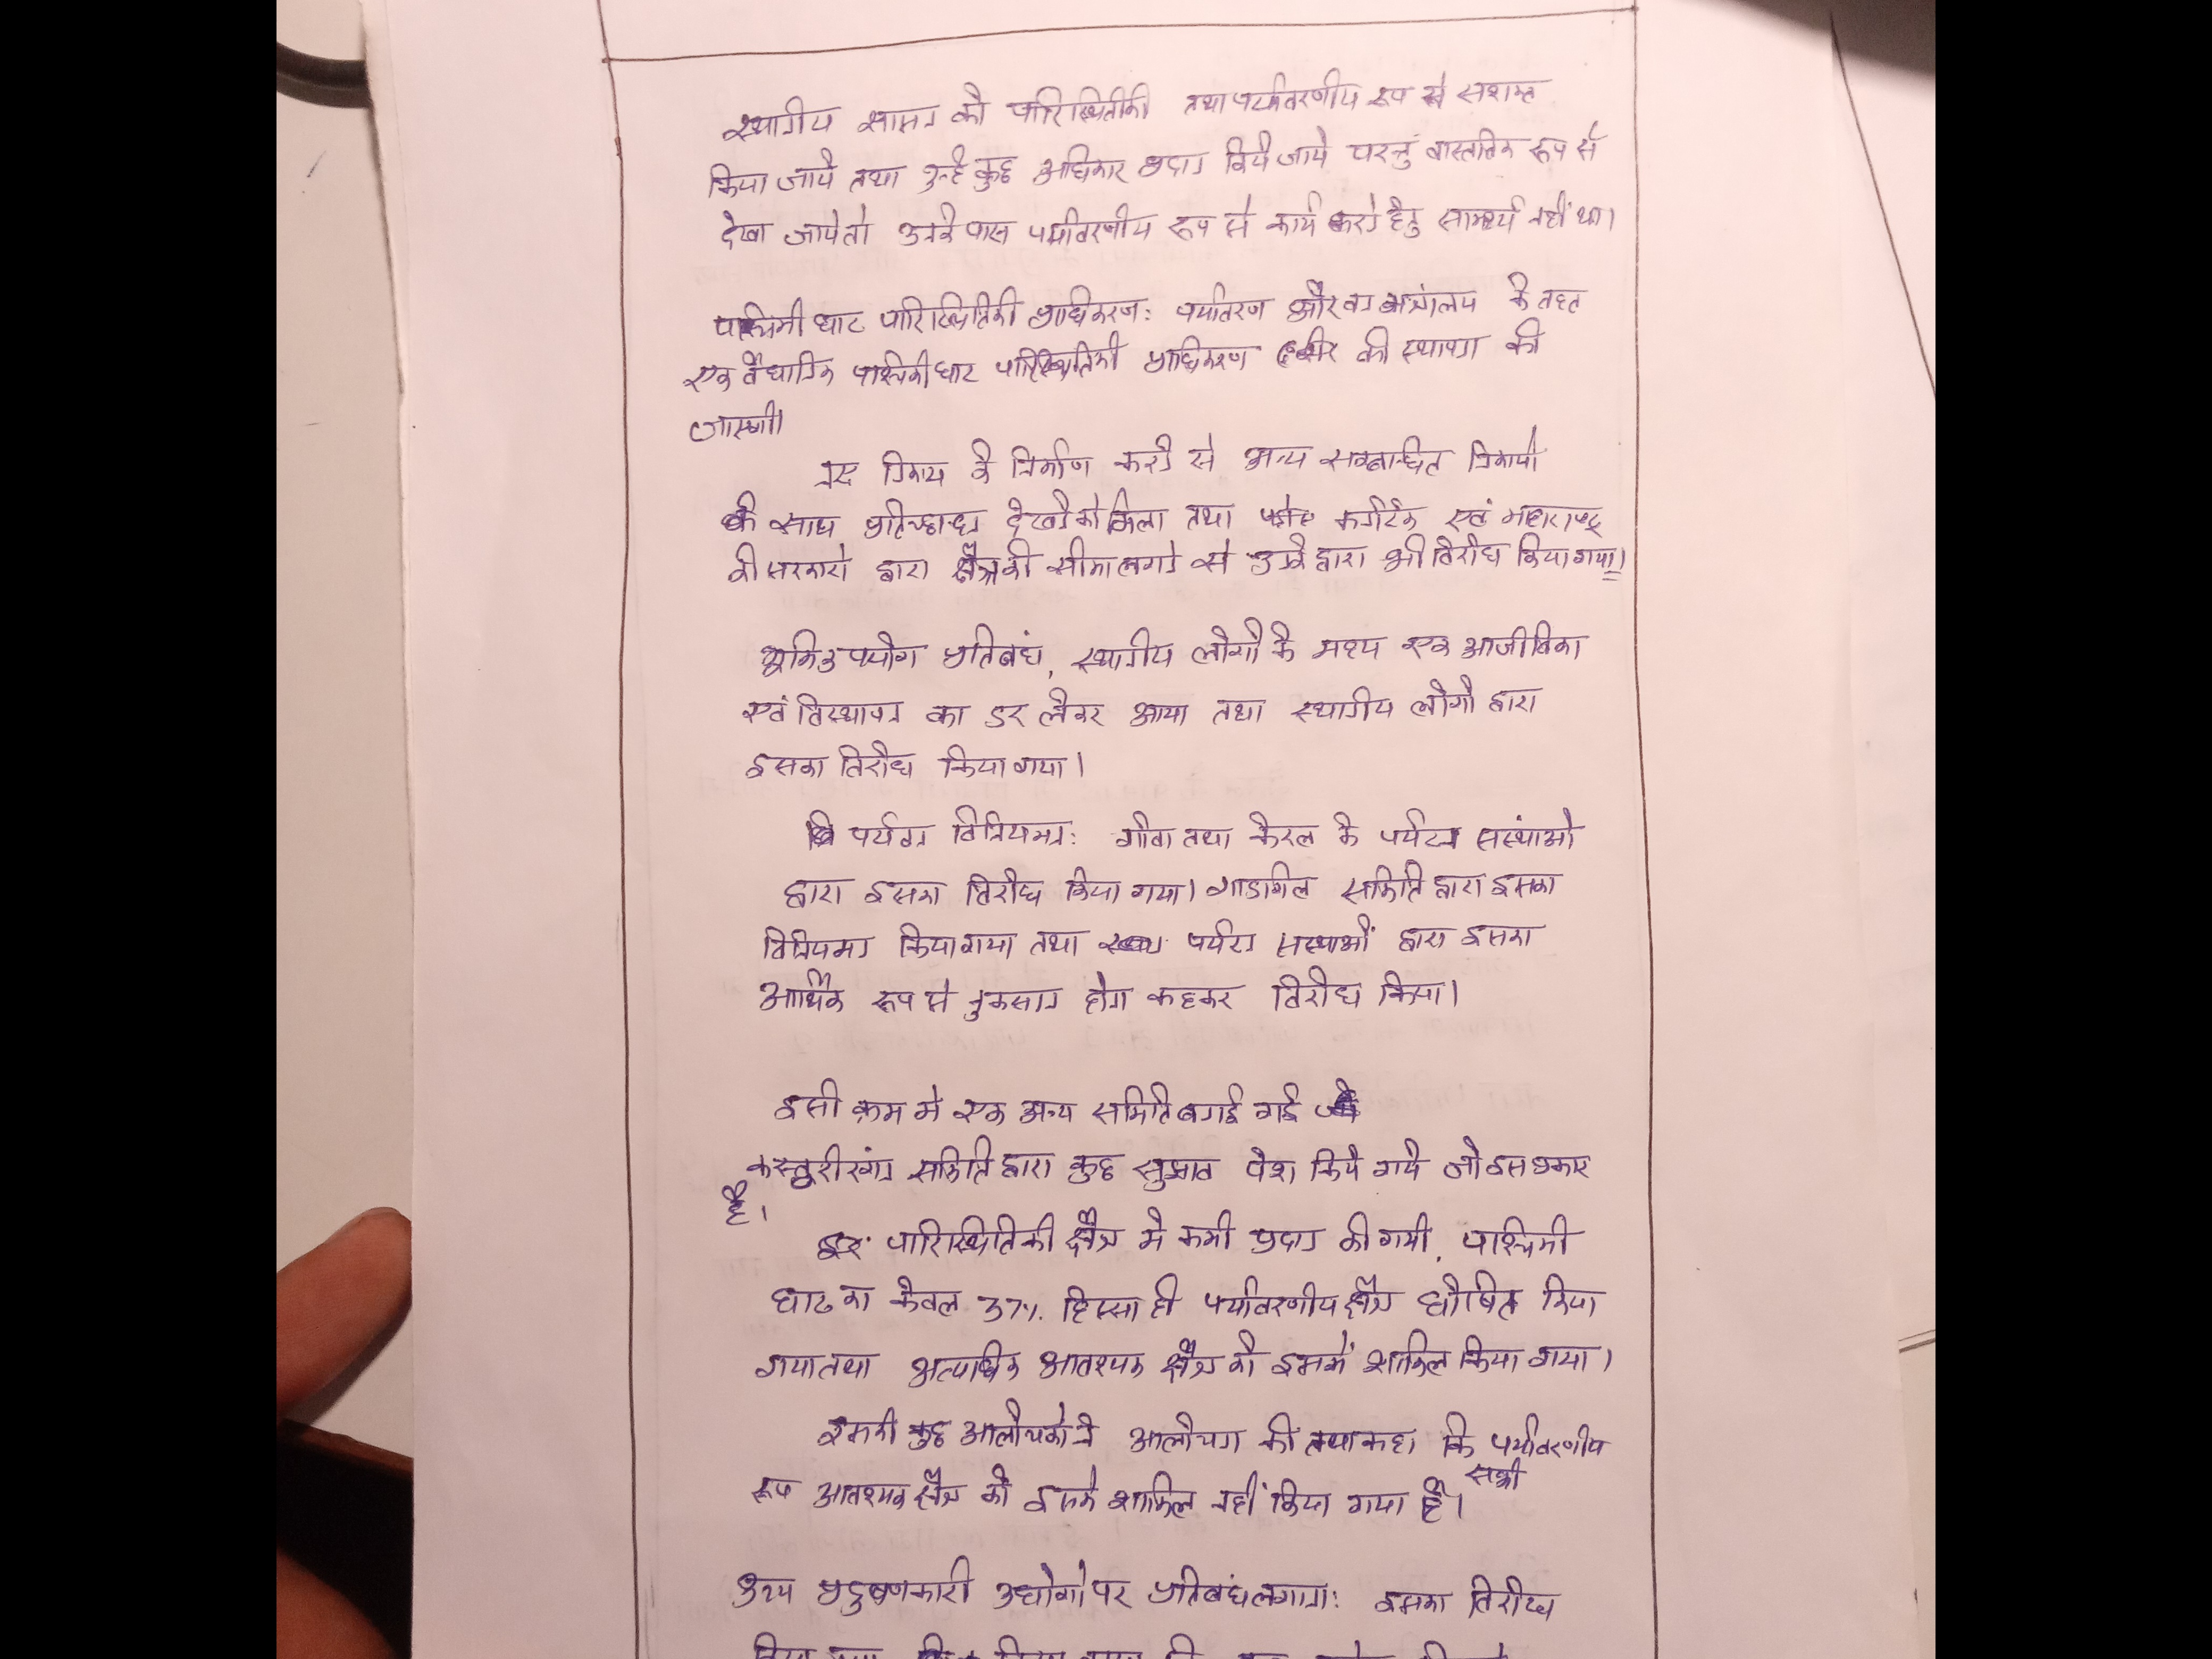 स्थानीय शासन को पारिस्थितीकी तथा पर्यावरणीय रूप से सशक्त
किया जाये तथा उन्हे कुछ अधिकार प्रदान किये जाये परन्तु वास्तविक रूप से
देखा जाये तो उनके पास पर्यावरणीय रूप से कार्य करने हेतु सामर्थ्य नहीं था।
पश्चिमी घाट पारिस्थितिकी प्राधिकरण: पर्यावरण और वन मंत्रालय के तहत
एक वैधानिक पश्चिमी घाट पारिस्थितिकी प्राधिकरण की स्थापना की
जाएगी।
इस निकाय के निर्माण करने से अन्य सम्बन्धित निकायो
के साथ प्रतिद्वन्द्व देखने को मिला तथा कर्नाटक एवं महाराष्ट्र
की सरकारो द्वारा क्षैत्र की सीमा लगाने से उनके द्वारा भी विरोध किया गया।
भूमि उपयोग प्रतिबंध, स्थानीय लोगो के मध्य एक आजीविका
एवं विस्थापन का डर लेकर आया तथा स्थानीय लोगो द्वारा
इसका विरोध किया गया।
पर्यटन विनियमन: गोवा तथा केरल के पर्यटन संस्थाओ
द्वारा इसका विरोध किया गया। गाडगिल समिति द्वारा इसका
विनियमन किया गया तथा पर्यटन संस्थाओं द्वारा इसका
आर्थिक रूप से नुकसान होगा कहकर विरोध किया।
इसी क्रम मे एक अन्य समिति बनाई गई
कस्तूरीरंगन समिति द्वारा कुछ सुझाव पेश किये गये जो इस प्रकार
है।
पारिस्थितिकी क्षैत्र मे कमी प्रदान की गयी, पश्चिमी
घाट का केवल 37%. हिस्सा ही पर्यावरणीय क्षैत्र घोषित किया
गया तथा अत्यधिक आवश्यक क्षैत्र को इसमें शामिल किया गया।
इसकी कुछ आलोचको ने आलोचना की तथा कहा कि पर्यावरणीय
रूप आवश्यक सभी क्षैत्र को इसमे शामिल नहीं किया गया है।
उच्च प्रदुषणकारी उधोगो पर प्रतिबंध लगाना: इसका विरोध